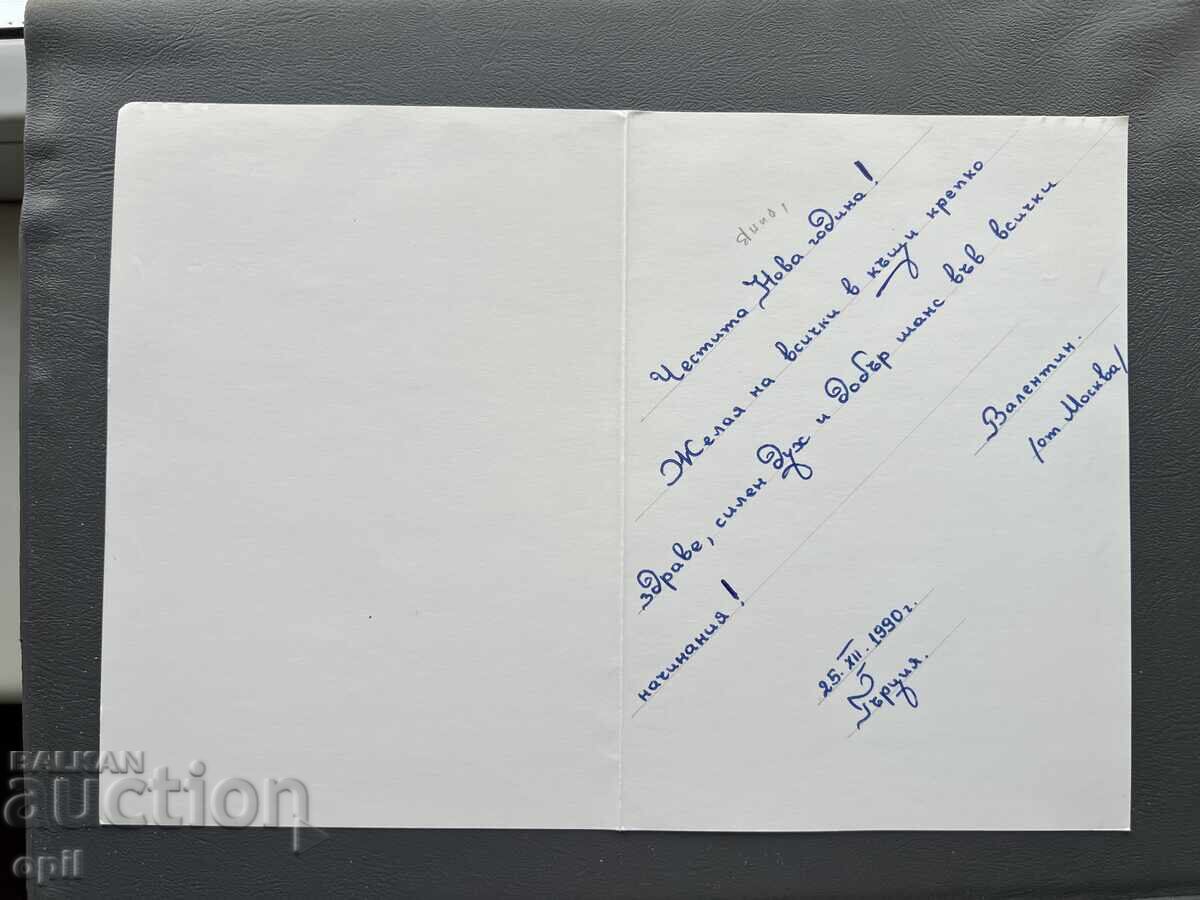 Честита Нова година!
Желая на всички в къщи крепко
здраве, силен дух и добър шанс във всички
начинания!
Валентин.
/от Москва/
25.XII.1990г.
Гърция.
BALKAN
auction
opil